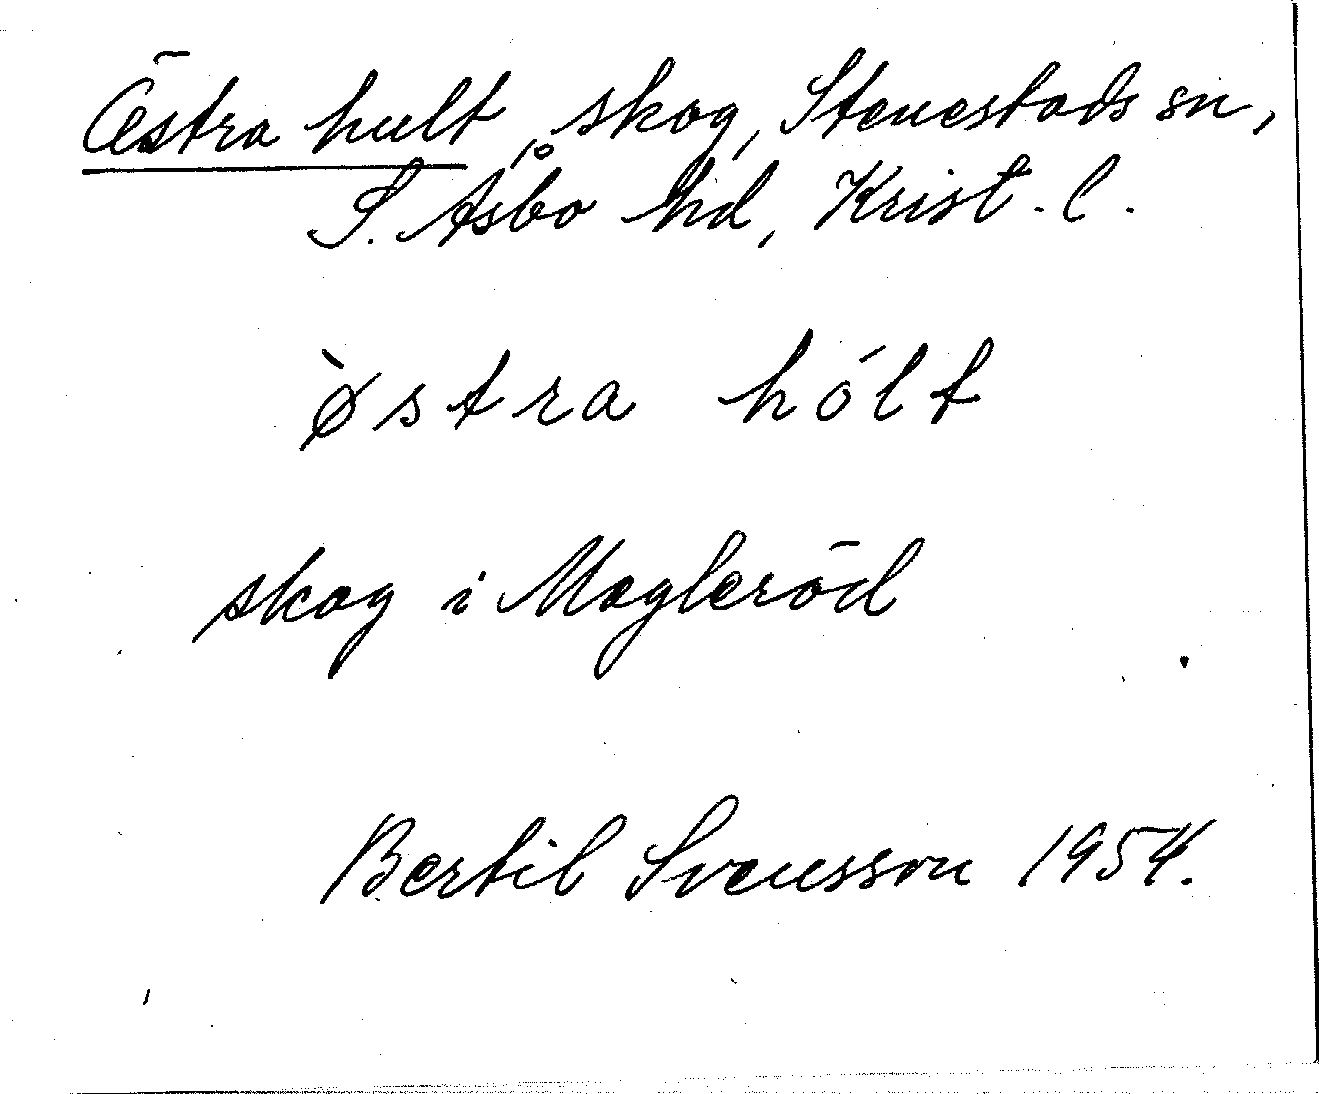 Östra hult, skog, Stenestads sn,
S. Åsbo hd, Krist. l.
ø̀stra hólt
skog i Magleröd
Bertil Svensson 1954.